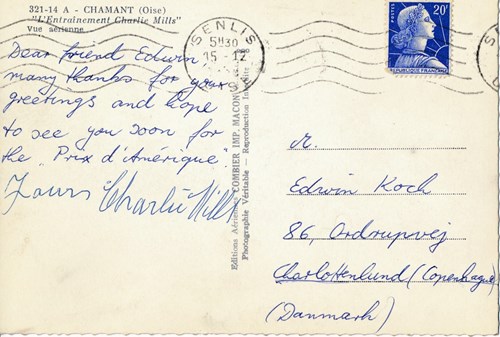 321-14 A - CHAMANT (Oise)
"L'Entrainement Charlie Mills"
Vue aérienne
Dear friend Edwin
many thanks for your
greetings and hope
to see you soon for
the "Prix d'Amérique"
Yours Charlie Mills
Editions Aériennes COMBIER IMP. MACON
Photographie Véritable - Reproduction Interdite
SENLIS
15-12
POSTES
20F
REPUBLIQUE FRANÇAISE
Edwin Koch
86, Ordrupvej
Charlottenlund (Copenhague)
(Danmark)